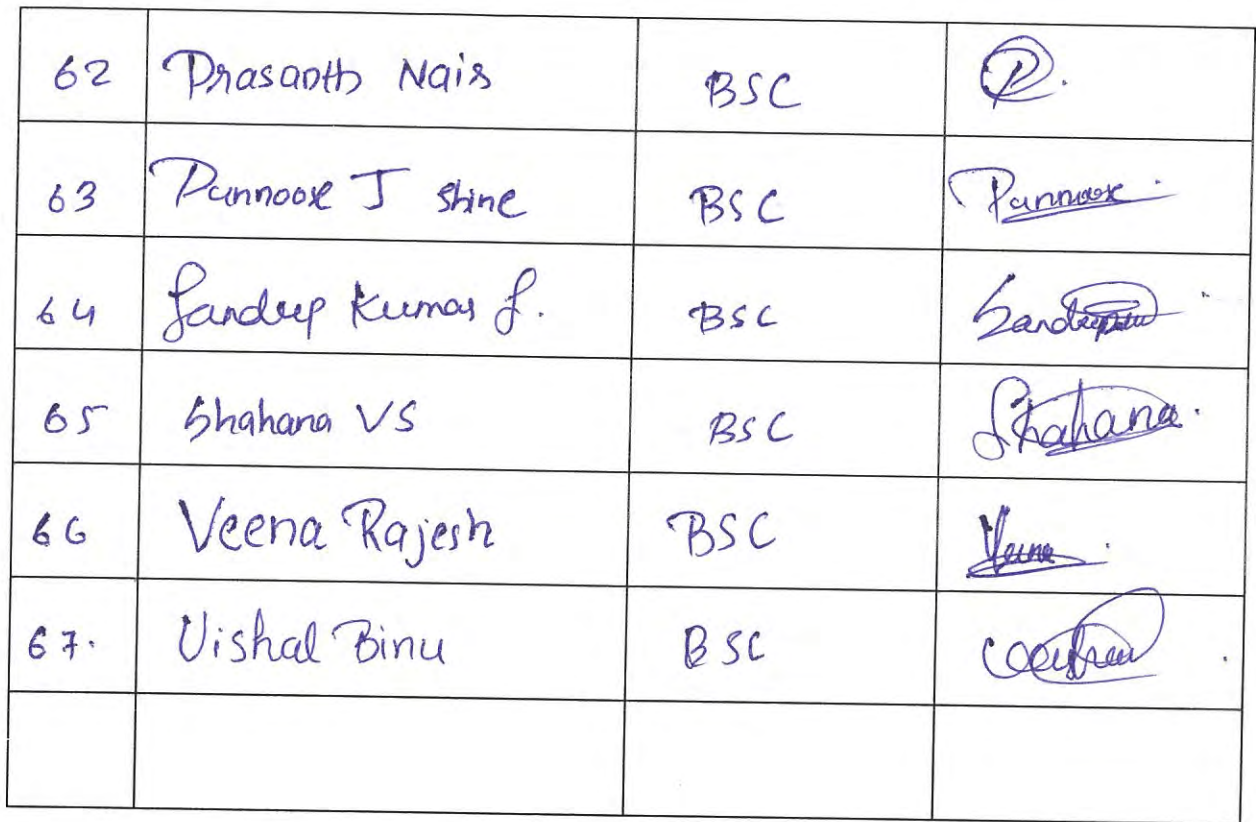 62 Prasanth Nair BSC P.
63 Punnoose J Shine BSC Punnoose.
64 Sandeep Kumar S. BSC Sandeep
65 Shahana VS BSC Shahana.
66 Veena Rajesh BSC Veena.
67. Vishal Binu BSC